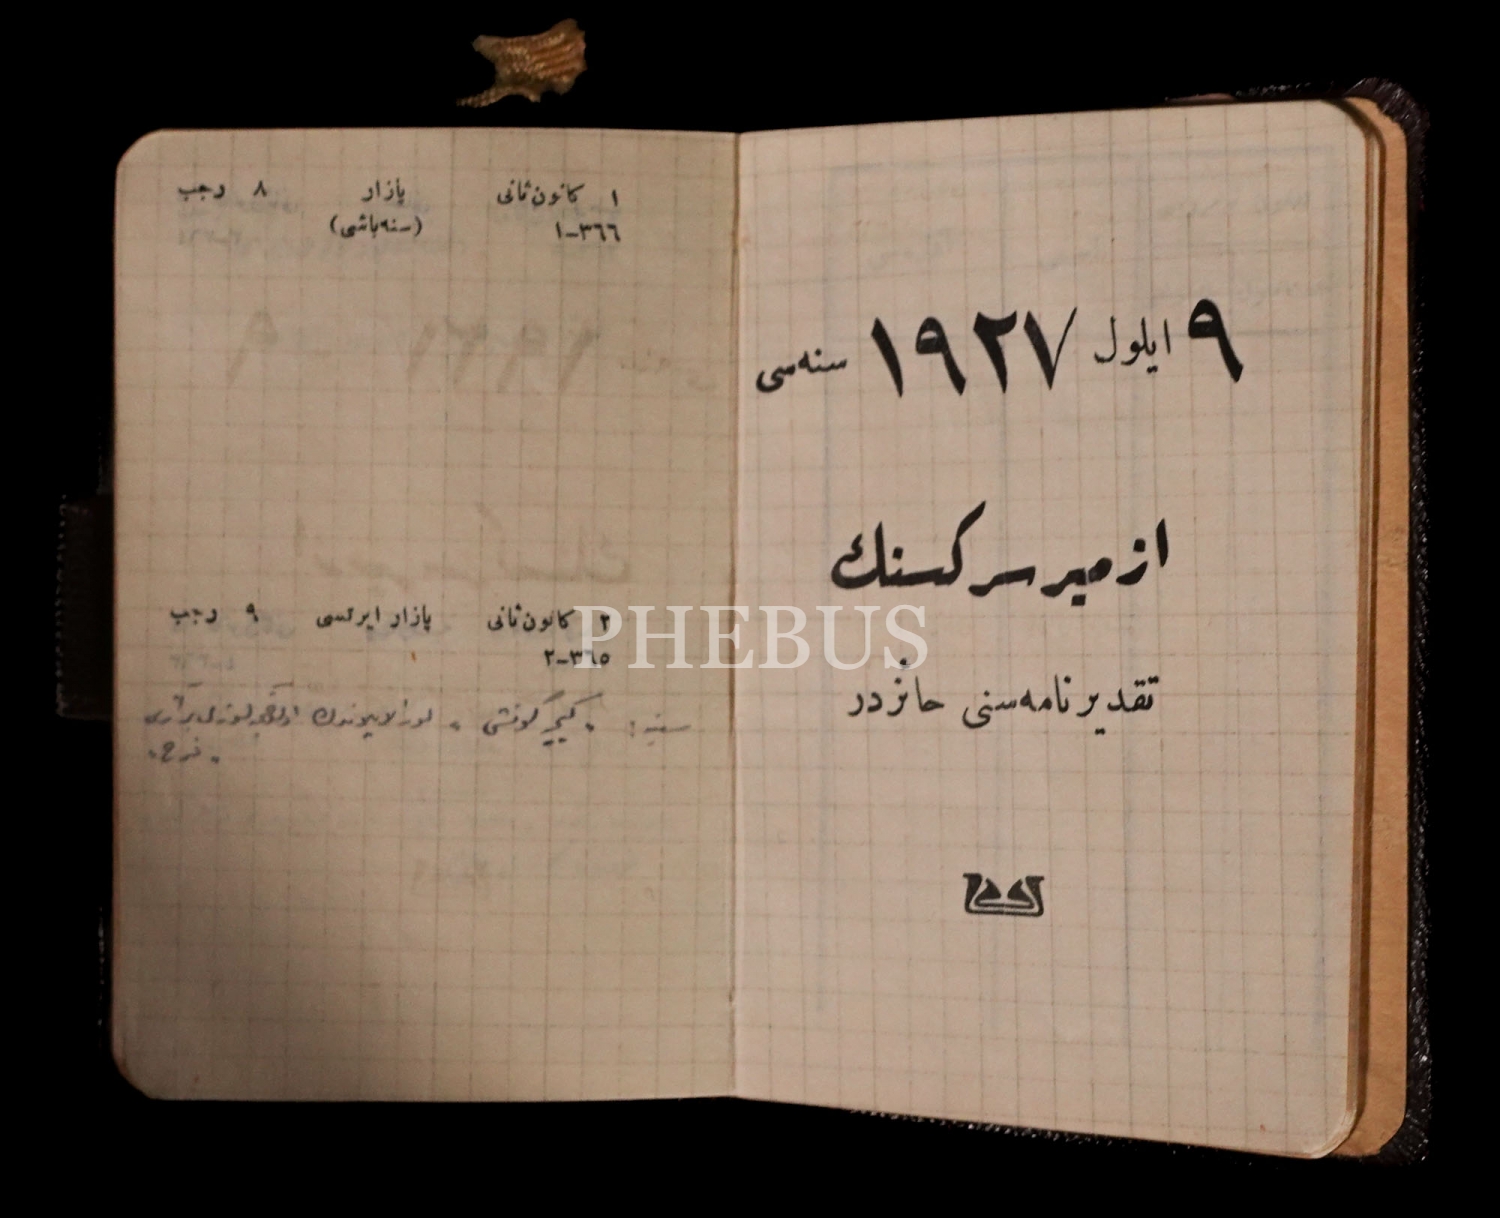 ٩ ايلول ١٩٢٧ سنه‌سى
ازمير سركسنك
تقديرنامه‌سنى حائزدر
١ كانون ثانى پازار ٨ رجب
١-٣٦٦ (سنه‌باشى)
٢ كانون ثانى پازار ايرتسى ٩ رجب
٢-٣٦٥
PHEBUS